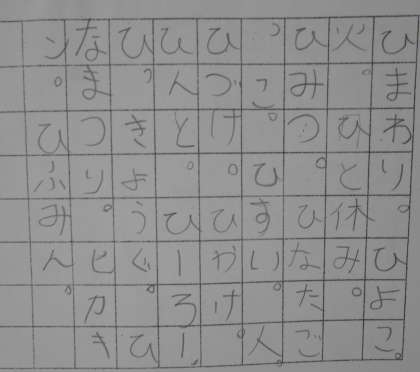 ひまわり。ひよこ。
火。ひと休み。
ひみつ。ひなたご
っこ。ひすい。人。
ひづけ。ひかけ。
ひんと。ひーろー。
ひっきようぐ。ひ
なまつり。ヒカキ
ン。ひふみん。